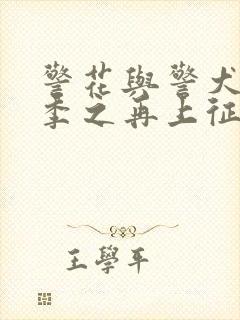 警花與警犬
季之再上征
王學平